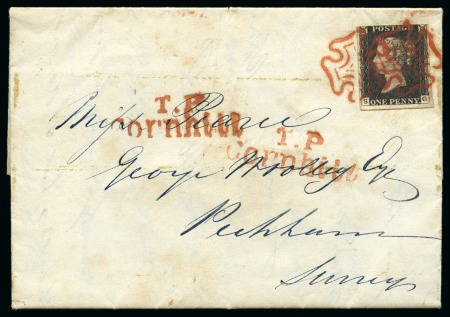 POSTAGE
S G
ONE PENNY
T.P
Cornhill
T.P
Cornhill
Miss Pearce
George Woolley Esq
Peckham
Surrey